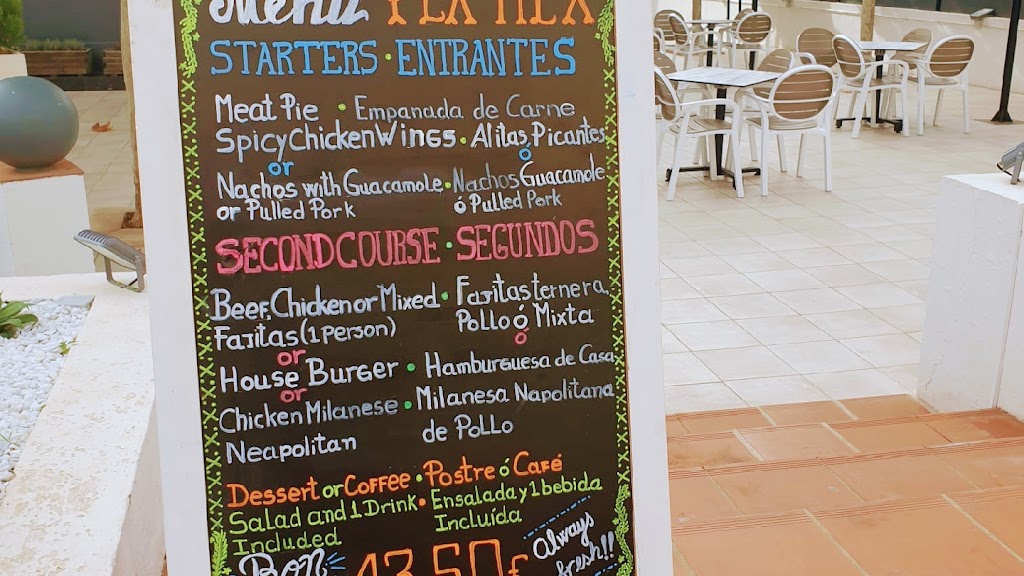 Menú
STARTERS · ENTRANTES
Meat Pie · Empanada de Carne
Spicy Chicken Wings · Alitas Picantes
or ó
Nachos with Guacamole · Nachos Guacamole
or Pulled Pork ó Pulled Pork
SECOND COURSE · SEGUNDOS
Beef, Chicken or Mixed · Fajitas ternera
Fajitas (1 person) Pollo ó Mixta
or ó
House Burger · Hamburguesa de Casa
or
Chicken Milanese · Milanesa Napolitana
Neapolitan de Pollo
Dessert or Coffee · Postre ó Café
Salad and 1 Drink · Ensalada y 1 bebida
Included Incluída
Bon 13,50€ Always
fresh!!